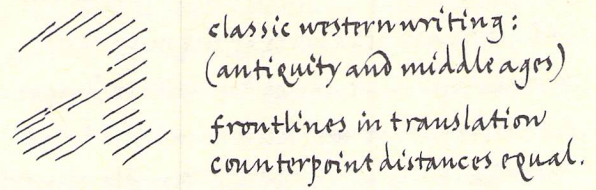 classic western writing:
(antiquity and middle ages)
frontlines in translation
counterpoint distances equal.